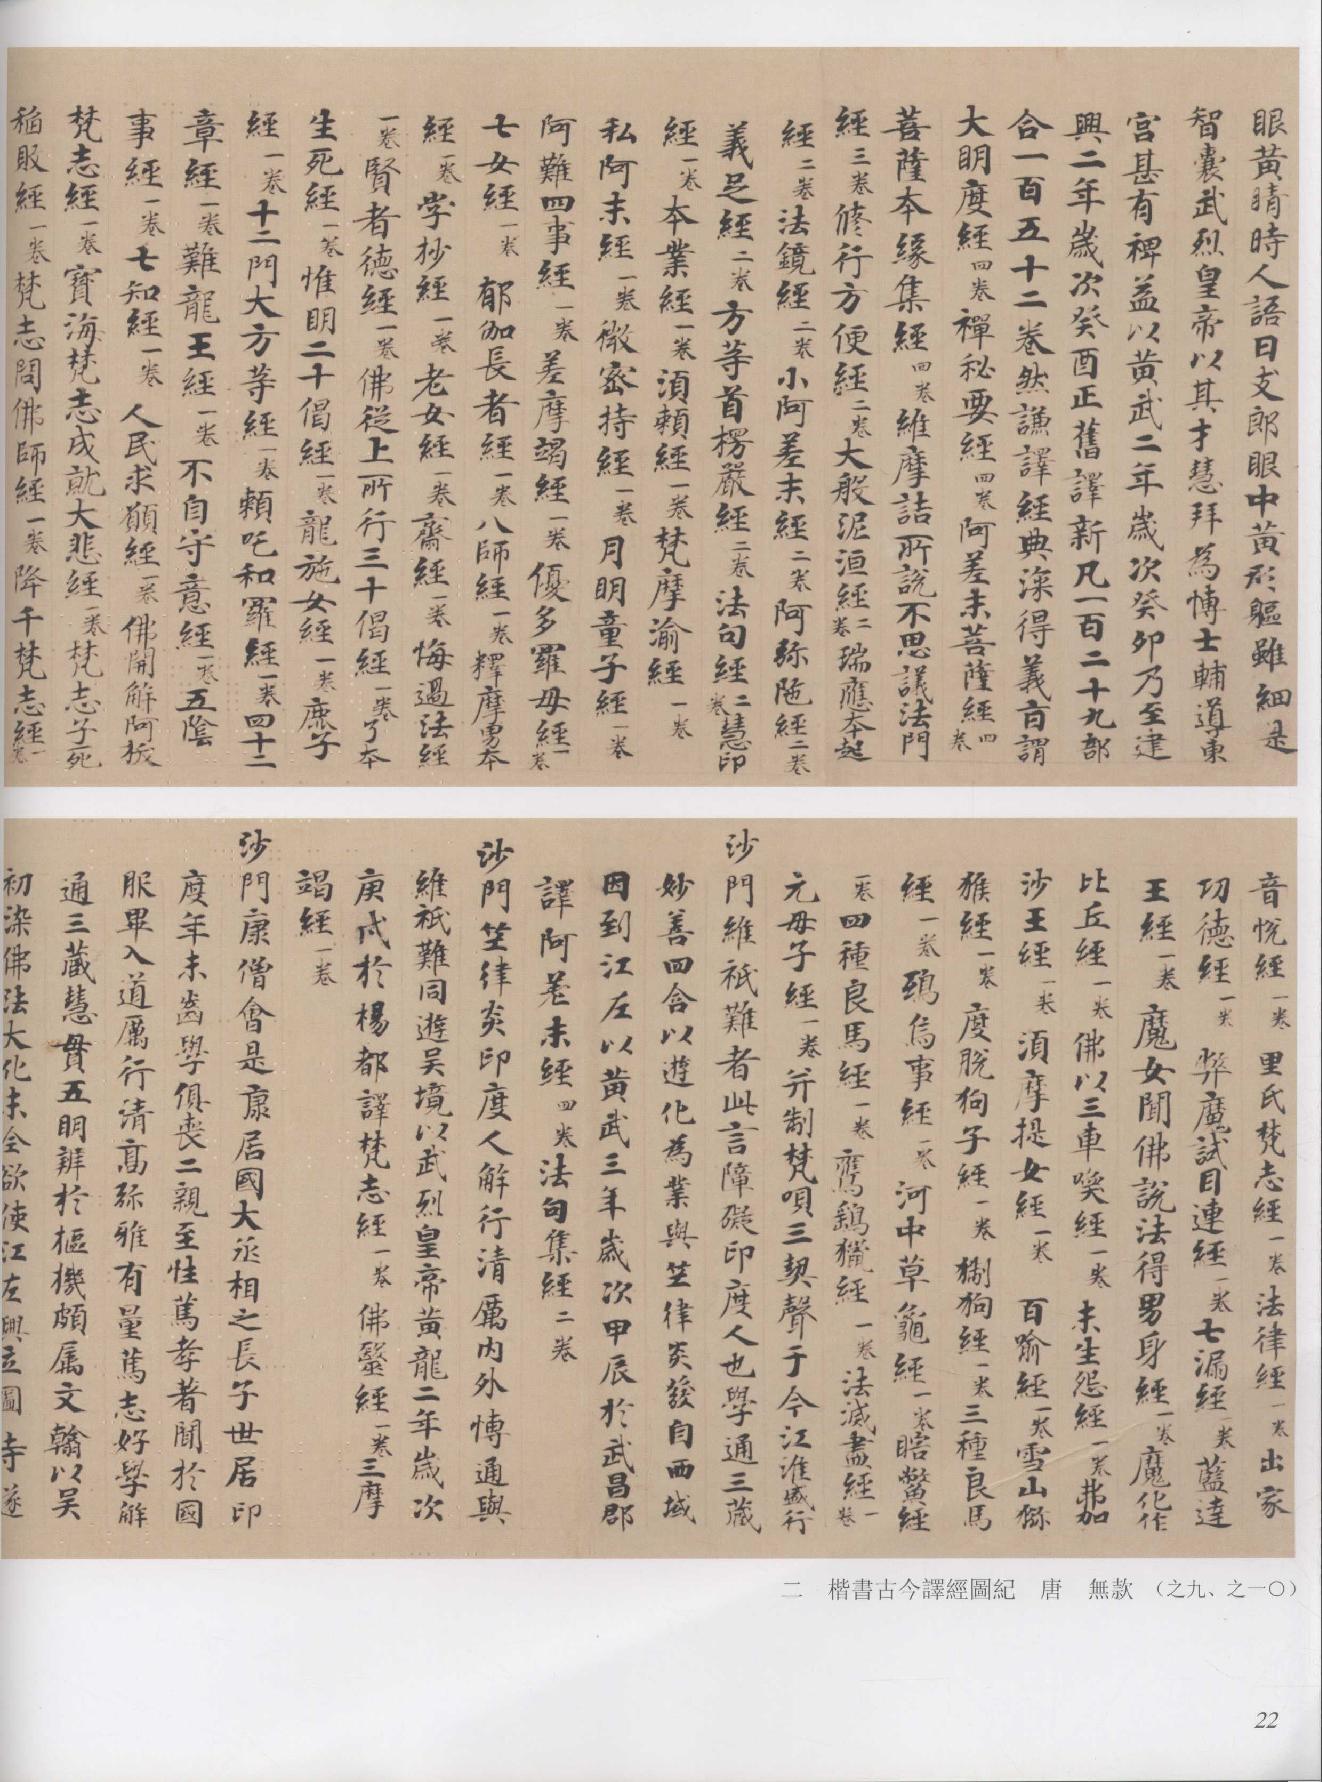 眼黃睛時人語曰支郎眼中黃形軀雖細是
智囊武烈皇帝以其才慧拜為博士輔導東
宮甚有裨益以黃武二年歲次癸卯乃至建
興二年歲次癸酉正舊譯新凡一百二十九部
合一百五十二卷然謙譯經典深得義旨謂
大明度經四卷禪秘要經四卷阿差末菩薩經四卷
菩薩本緣集經四卷維摩詰所說不思議法門
經三卷脩行方便經二卷大般泥洹經二卷瑞應本起
經二卷法鏡經二卷小阿差末經二卷阿弥陁經二卷
義足經二卷方等首楞嚴經二卷法句經二卷慧印
經一卷本業經一卷須賴經一卷梵摩渝經一卷
私阿末經一卷微密持經一卷月明童子經一卷
阿難四事經一卷差摩竭經一卷優多羅母經一卷
七女經一卷郁伽長者經一卷八師經一卷釋摩男本
經一卷孛抄經一卷老女經一卷齋經一卷悔過法經
一卷賢者德經一卷佛從上所行三十偈經一卷了本
生死經一卷惟明二十偈經一卷龍施女經一卷鹿子
經一卷十二門大方等經一卷賴吒和羅經一卷四十二
章經一卷難龍王經一卷不自守意經一卷五陰
事經一卷七知經一卷人民求願經一卷佛開解阿拔
梵志經一卷寶海梵志成就大悲經一卷梵志子死
稻敗經一卷梵志問佛師經一卷降千梵志經一卷
音悅經一卷里氏梵志經一卷法律經一卷出家
功德經一卷弊魔試目連經一卷七漏經一卷藍達
王經一卷魔女聞佛說法得男身經一卷魔化作
比丘經一卷佛以三車喚經一卷未生怨經一卷弗加
沙王經一卷須摩提女經一卷百喻經一卷雪山獼
猴經一卷度脫狗子經一卷猘狗經一卷三種良馬
經一卷鵄烏事經一卷河中草龜經一卷瞎鱉經
一卷四種良馬經一卷鷹鷂獵經一卷法滅盡經一卷
元母子經一卷并制梵唄三契聲于今江淮盛行
沙門維祇難者此言障礙印度人也學通三藏
妙善四含以遊化為業與竺律炎發自西域
因到江左以黃武三年歲次甲辰於武昌郡
譯阿差末經四卷法句集經二卷
沙門竺律炎印度人解行清厲內外博通與
維祇難同遊吳境以武烈皇帝黃龍二年歲次
庚戌於楊都譯梵志經一卷佛毉經一卷三摩
竭經一卷
沙門康僧會是康居國大丞相之長子世居印
度年未齒學俱喪二親至性篤孝著聞於國
服畢入道厲行清高弥雅有量篤志好學解
通三藏慧貫五明辯於樞機頗屬文翰以吳
初染佛法大化未全欲使江左興立圖寺遂
二 楷書古今譯經圖紀 唐 無款 （之九、之一〇）
22